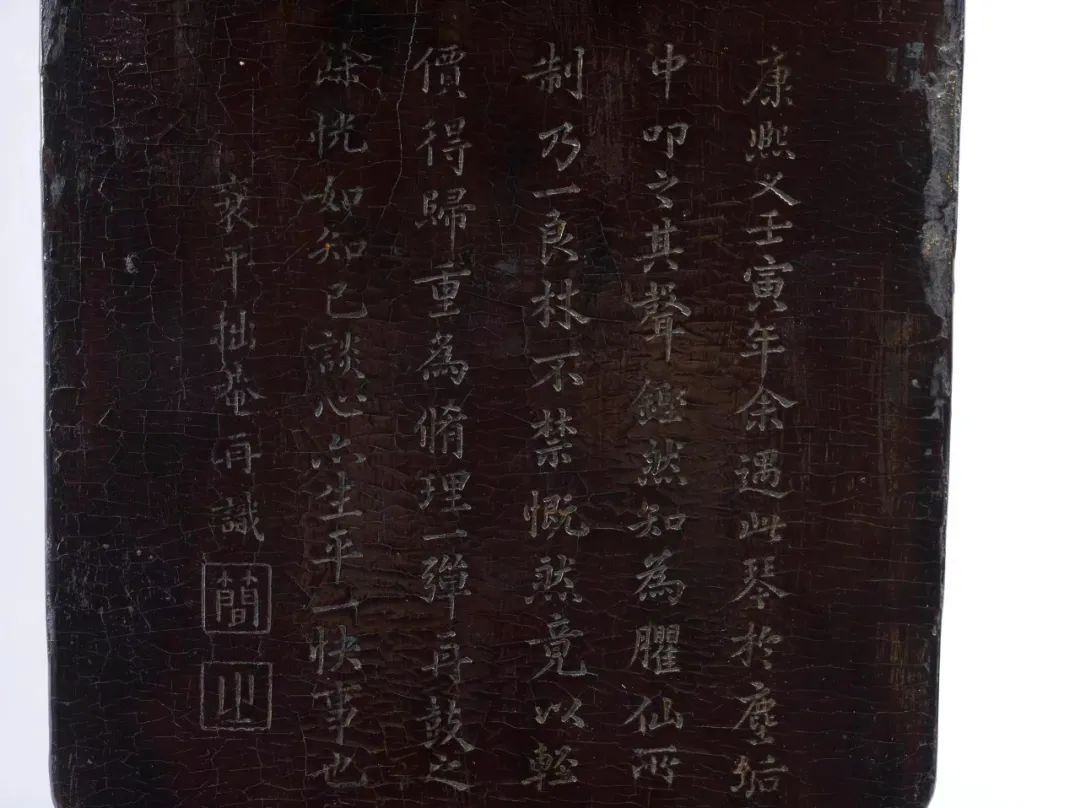 康熙又壬寅年余遇此琴於塵垢
中叩之其聲鏗然知為臞仙所
制乃一良材不禁慨然竟以輕
價得歸重為脩理一彈再鼓之
餘恍如知己談心亦生平一快事也
襄平拙菴再識
簡
之